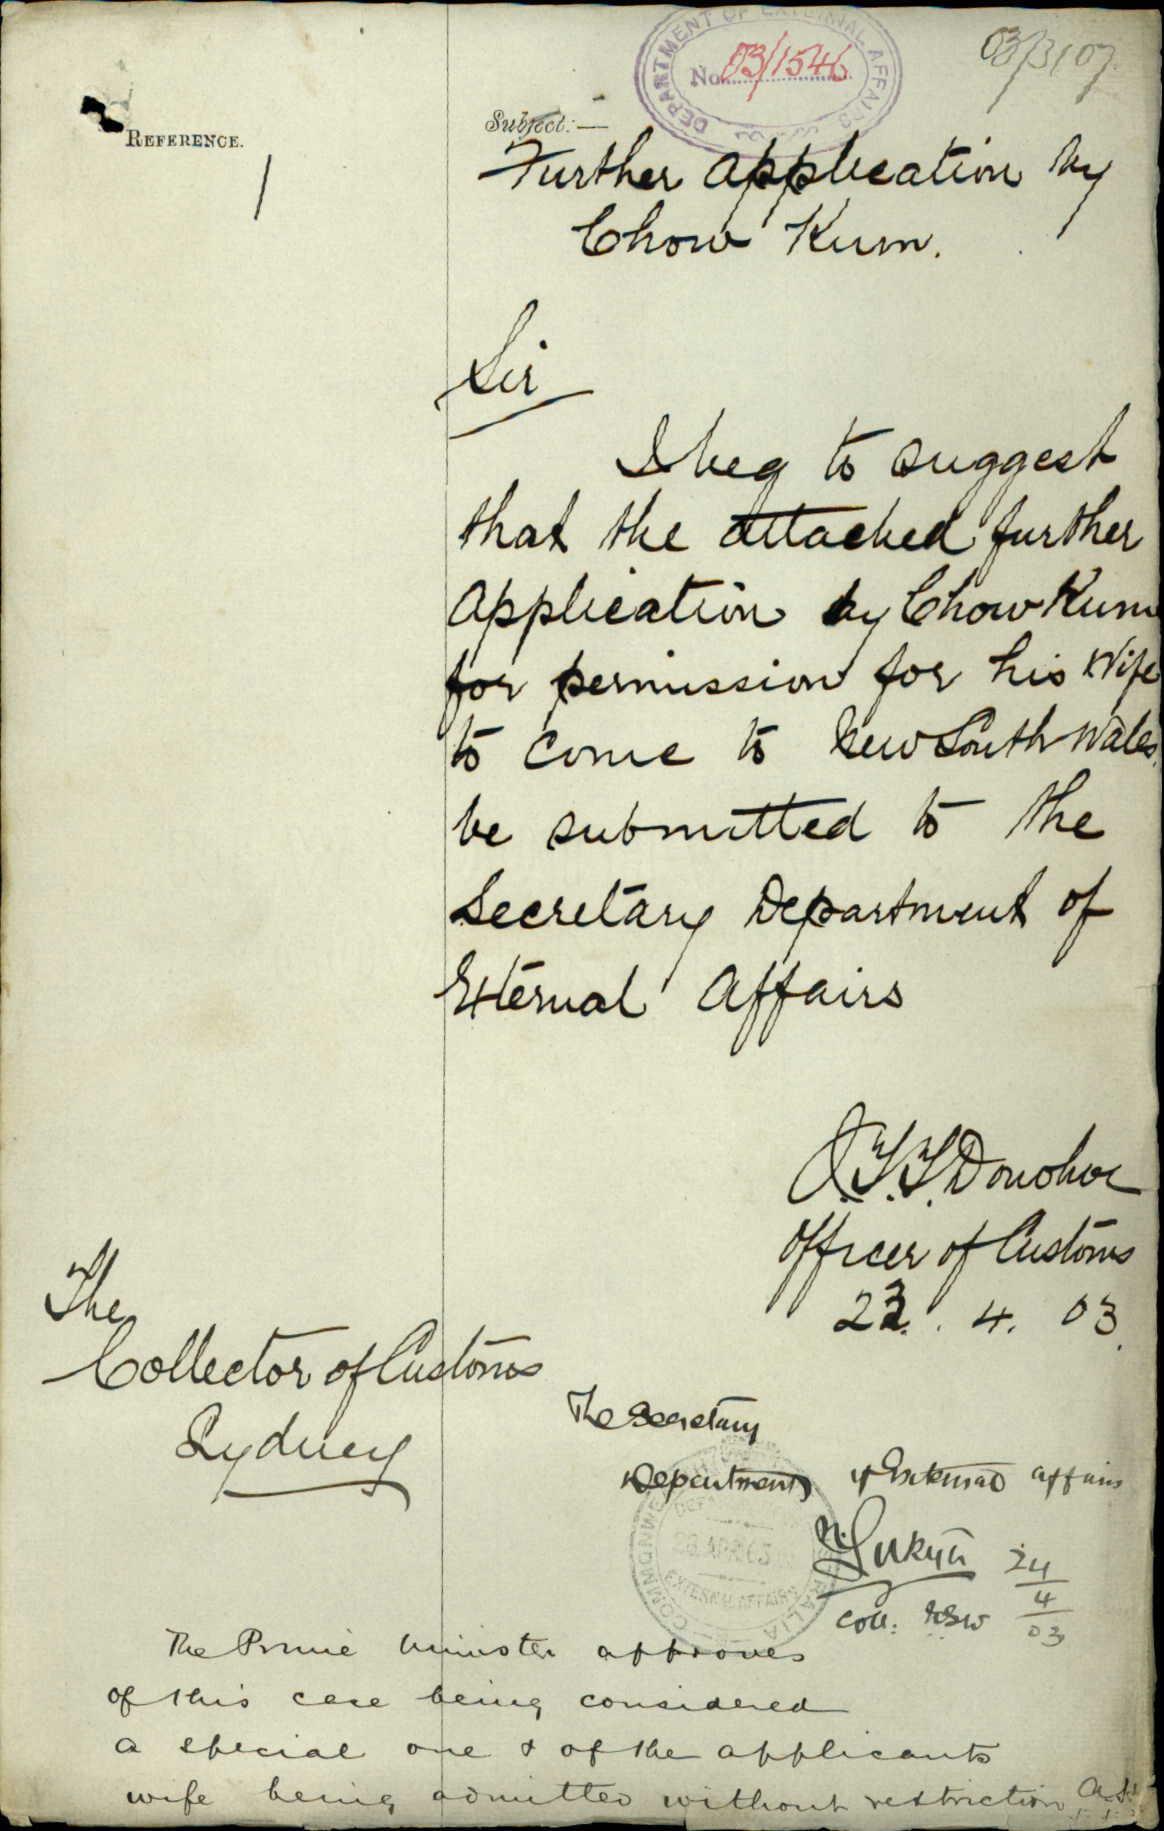 DEPARTMENT OF EXTERNAL AFFAIRS
No. 03/1546
03/3107
REFERENCE.
Subject:—
Further application by
Chow Kum.
Sir
I beg to suggest
that the attached further
application by Chow Kum
for permission for his Wife
to come to New South Wales
be submitted to the
Secretary Department of
External Affairs
J.T.T. Donohoe
Officer of Customs
23. 4. 03.
The
Collector of Customs
Sydney
The Secretary
Department of External Affairs
COMMONWEALTH AUSTRALIA
EXTERNAL AFFAIRS
Coll: NSW
24
4
03
The Prime Minister approves
of this case being considered
a special one & of the applicants
wife being admitted without restriction